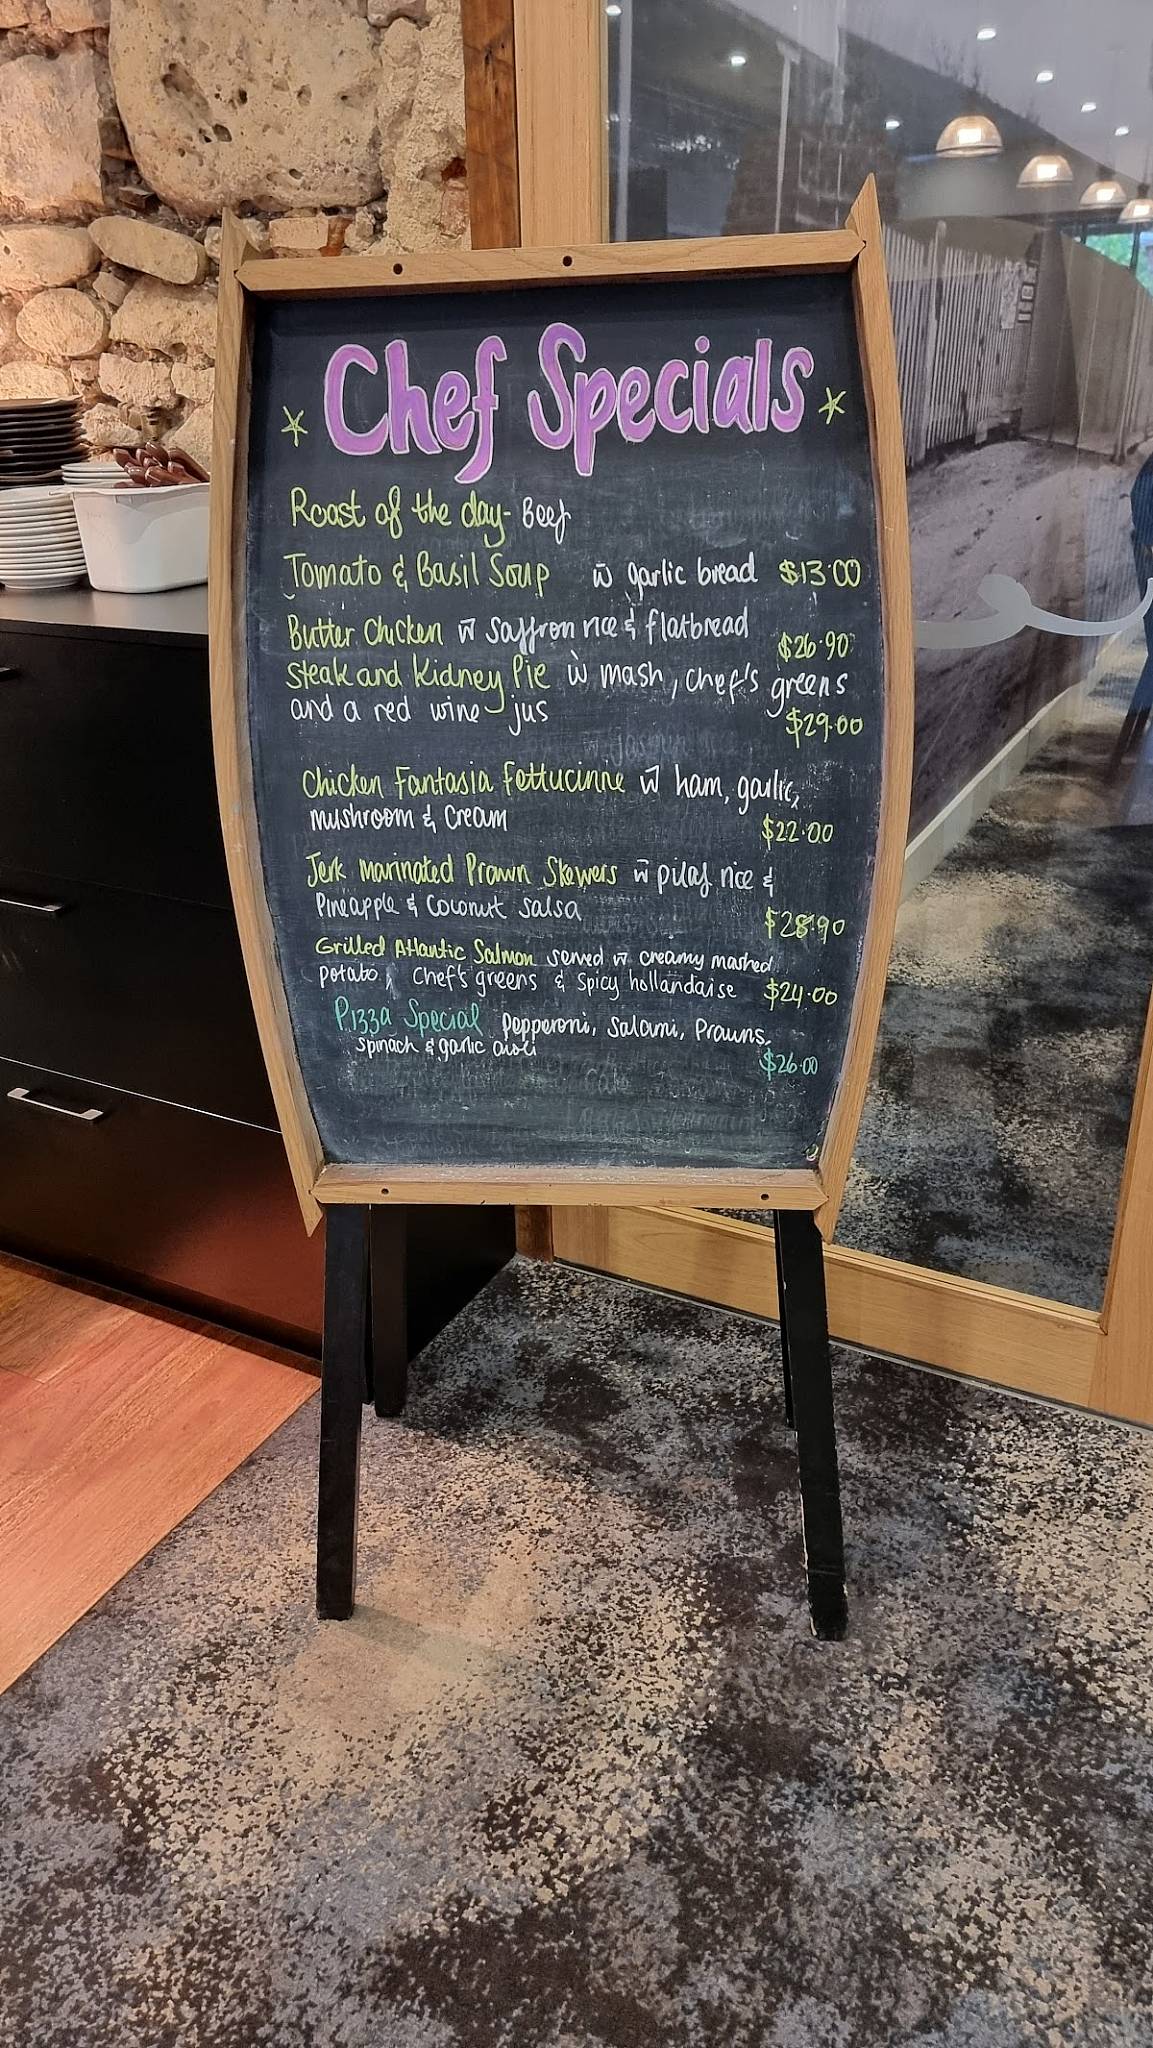 Chef Specials
Roast of the day - Beef
Tomato & Basil Soup w garlic bread $13.00
Butter Chicken w saffron rice & flatbread
$26.90
Steak and Kidney Pie w mash, chef's greens
and a red wine jus
$29.00
Chicken Fantasia Fettucinne w ham, garlic,
mushroom & Cream
$22.00
Jerk marinated Prawn Skewers w pilaf rice &
Pineapple & Coconut Salsa
$28.90
Grilled Atlantic Salmon served w creamy mashed
potato, Chef's greens & Spicy hollandaise $24.00
Pizza Special Pepperoni, Salami, Prawns,
spinach & garlic aioli
$26.00